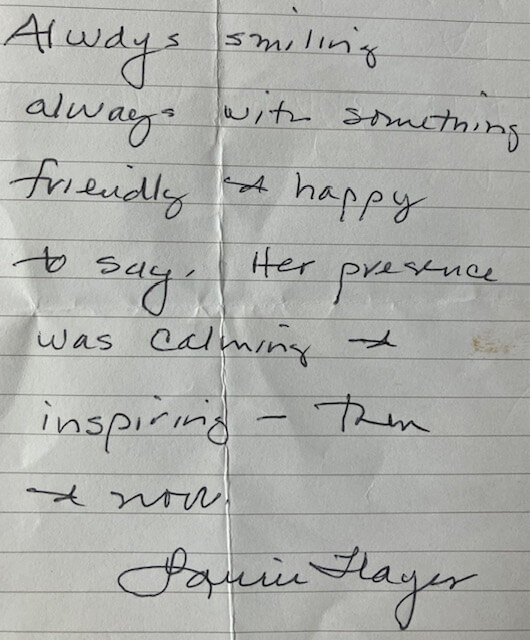 Always smiling
always with something
friendly & happy
to say. Her presence
was calming &
inspiring – then
& now.
Laurie